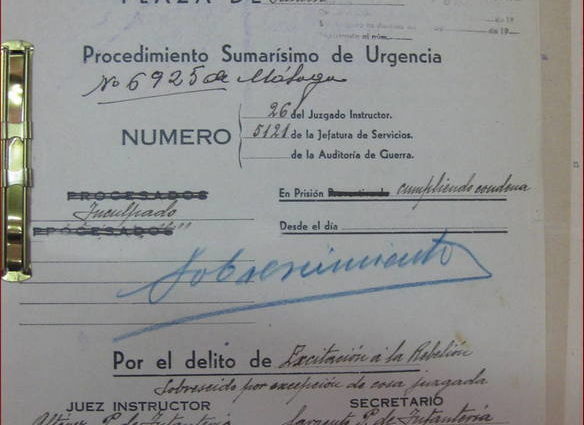 PLAZA DE
de 19
de 19
Procedimiento Sumarísimo de Urgencia
No 6925 de Málaga
NUMERO
26 del Juzgado Instructor.
5121 de la Jefatura de Servicios.
de la Auditoría de Guerra.
PROCESADOS
Inculpado
PROCESADOS"
En Prisión cumpliendo condena
Desde el día
Sobreseimiento
Por el delito de Excitación a la Rebelión
Sobreseido por excepción de cosa juzgada
JUEZ INSTRUCTOR
SECRETARIO
Alférez P. de Infantería
Sargento P. de Infantería